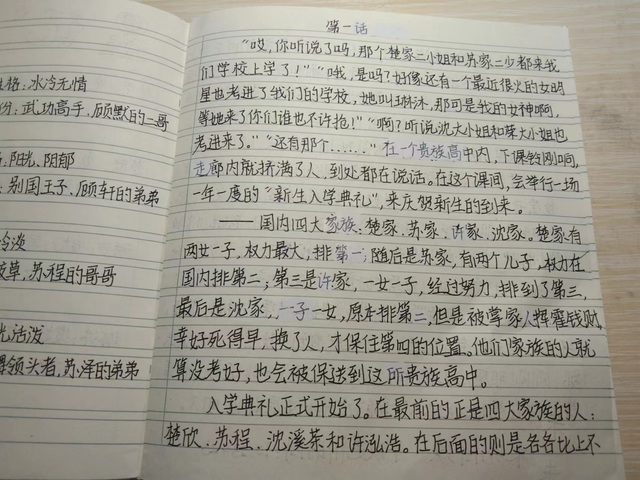 性格：冰冷无情
身份：武功高手、顾默的二哥
阳光、阴郁
别国王子、顾轩的弟弟
冷淡
校草，苏程的哥哥
光活泼
领头者，苏泽的弟弟
第一话
“哎，你听说了吗，那个楚家二小姐和苏家二少都来我
们学校上学了！”“哦，是吗？好像还有一个最近很火的女明
星也考进了我们的学校，她叫琳沐，那可是我的女神啊，
等她来了你们谁也不许抢！”“啊？听说沈大小姐和荣大小姐也
考进来了。”“还有那个……”在一个贵族高中内，下课铃刚响，
走廊内就挤满了人，到处都在说话。在这个课间，会举行一场
一年一度的“新生入学典礼”，来庆贺新生的到来。
——国内四大家族：楚家、苏家、许家、沈家。楚家有
两女一子，权力最大，排第一；随后是苏家，有两个儿子，权力在
国内排第二；第三是许家，一女一子，经过努力，排到了第三，
最后是沈家，一子一女，原本排第二，但是被掌家人挥霍钱财，
幸好死得早，换了人，才保住第四的位置。他们家族的人就
算没考好，也会被保送到这所贵族高中。
入学典礼正式开始了。在最前的正是四大家族的人：
楚欣、苏程、沈溪茶和许泓浩。在后面的则是各各比上不